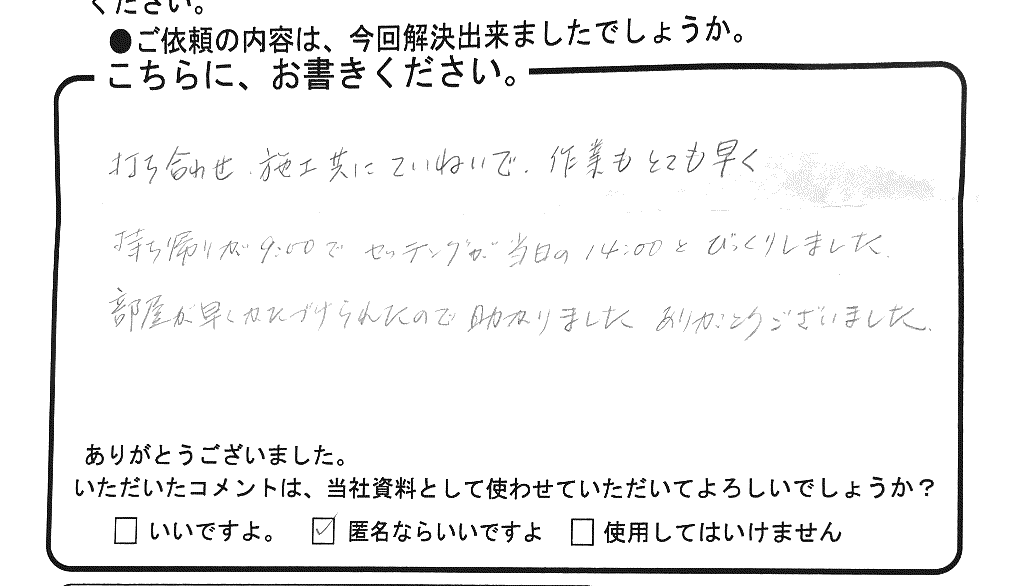 ください。
●ご依頼の内容は、今回解決出来ましたでしょうか。
こちらに、お書きください。
打ち合わせ、施工共にていねいで、作業もとても早く
持ち帰りが9:00で セッティングが当日の14:00とびっくりしました。
部屋が早くかたづけられたので助かりました ありがとうございました。
ありがとうございました。
いただいたコメントは、当社資料として使わせていただいてよろしいでしょうか？
□ いいですよ。 ☑ 匿名ならいいですよ □ 使用してはいけません